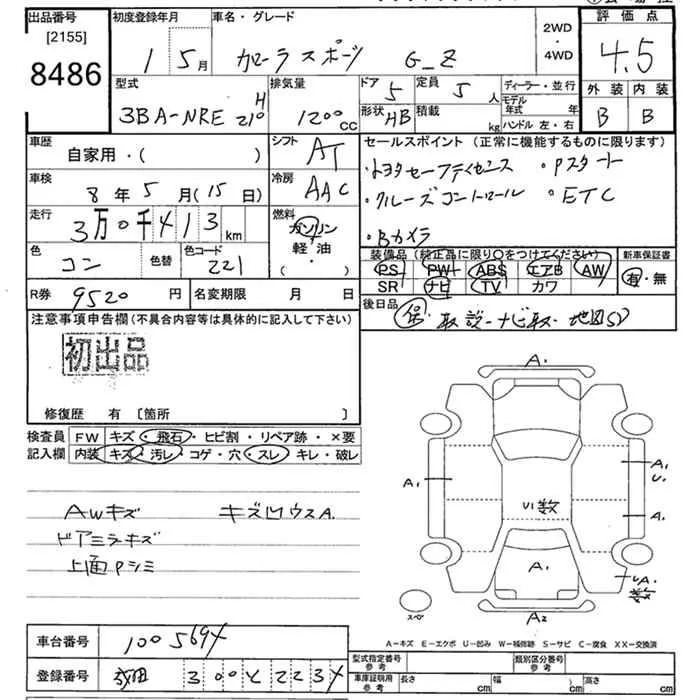 出品番号 初度登録年月 車名・グレード 評価点
[2155] 2WD
8486 1 5月 カローラスポーツ G_Z ・ 4.5
4WD
型式 排気量 ドア 5 定員 5人 ディーラー・並行 外装 内装
3BA-NRE210H 1200cc 形状 HB 積載 kg モデル年式 年 B B
ハンドル 左・右
車歴 シフト セールスポイント(正常に機能するものに限ります)
自家用・( ) AT ・トヨタセーフティセンス ・Pスタート
車検 冷房 ・クルーズコントロール ・ETC
8年5月(15日) AAC ・Bカメラ
走行 燃料
3万0千413km ガソリン
軽・油
・( )
装備品(純正品に限り○をつけてください) 新車保証書
PS PW ABS エアB AW 有・無
SR ナビ TV カワ
色 色替 色コード
コン 221
後日品
保 取説-ナビ取・地図SD
R券 9520円 名変期限 月 日
注意事項申告欄(不具合内容等は具体的に記入して下さい)
初出品
修復歴 有 [箇所 ]
検査員 FW キズ・飛石・ヒビ割・リペア跡・×要
記入欄 内装 キズ・汚レ・コゲ・穴・スレ・キレ・破レ
AWキズ キズ凹ウスA.
ドアミラキズ
上面Pシミ
A1
A1 A1
U1
U1数 A1
A1
数
スペ A2
A−キズ E−エクボ U−凹み W−補修跡 S−サビ C−腐食 XX−交換済
車台番号 型式指定番号 参考 類別区分番号 参考
登録番号 成田 300 車庫証明用 参考 長さ cm 幅 cm 高さ cm